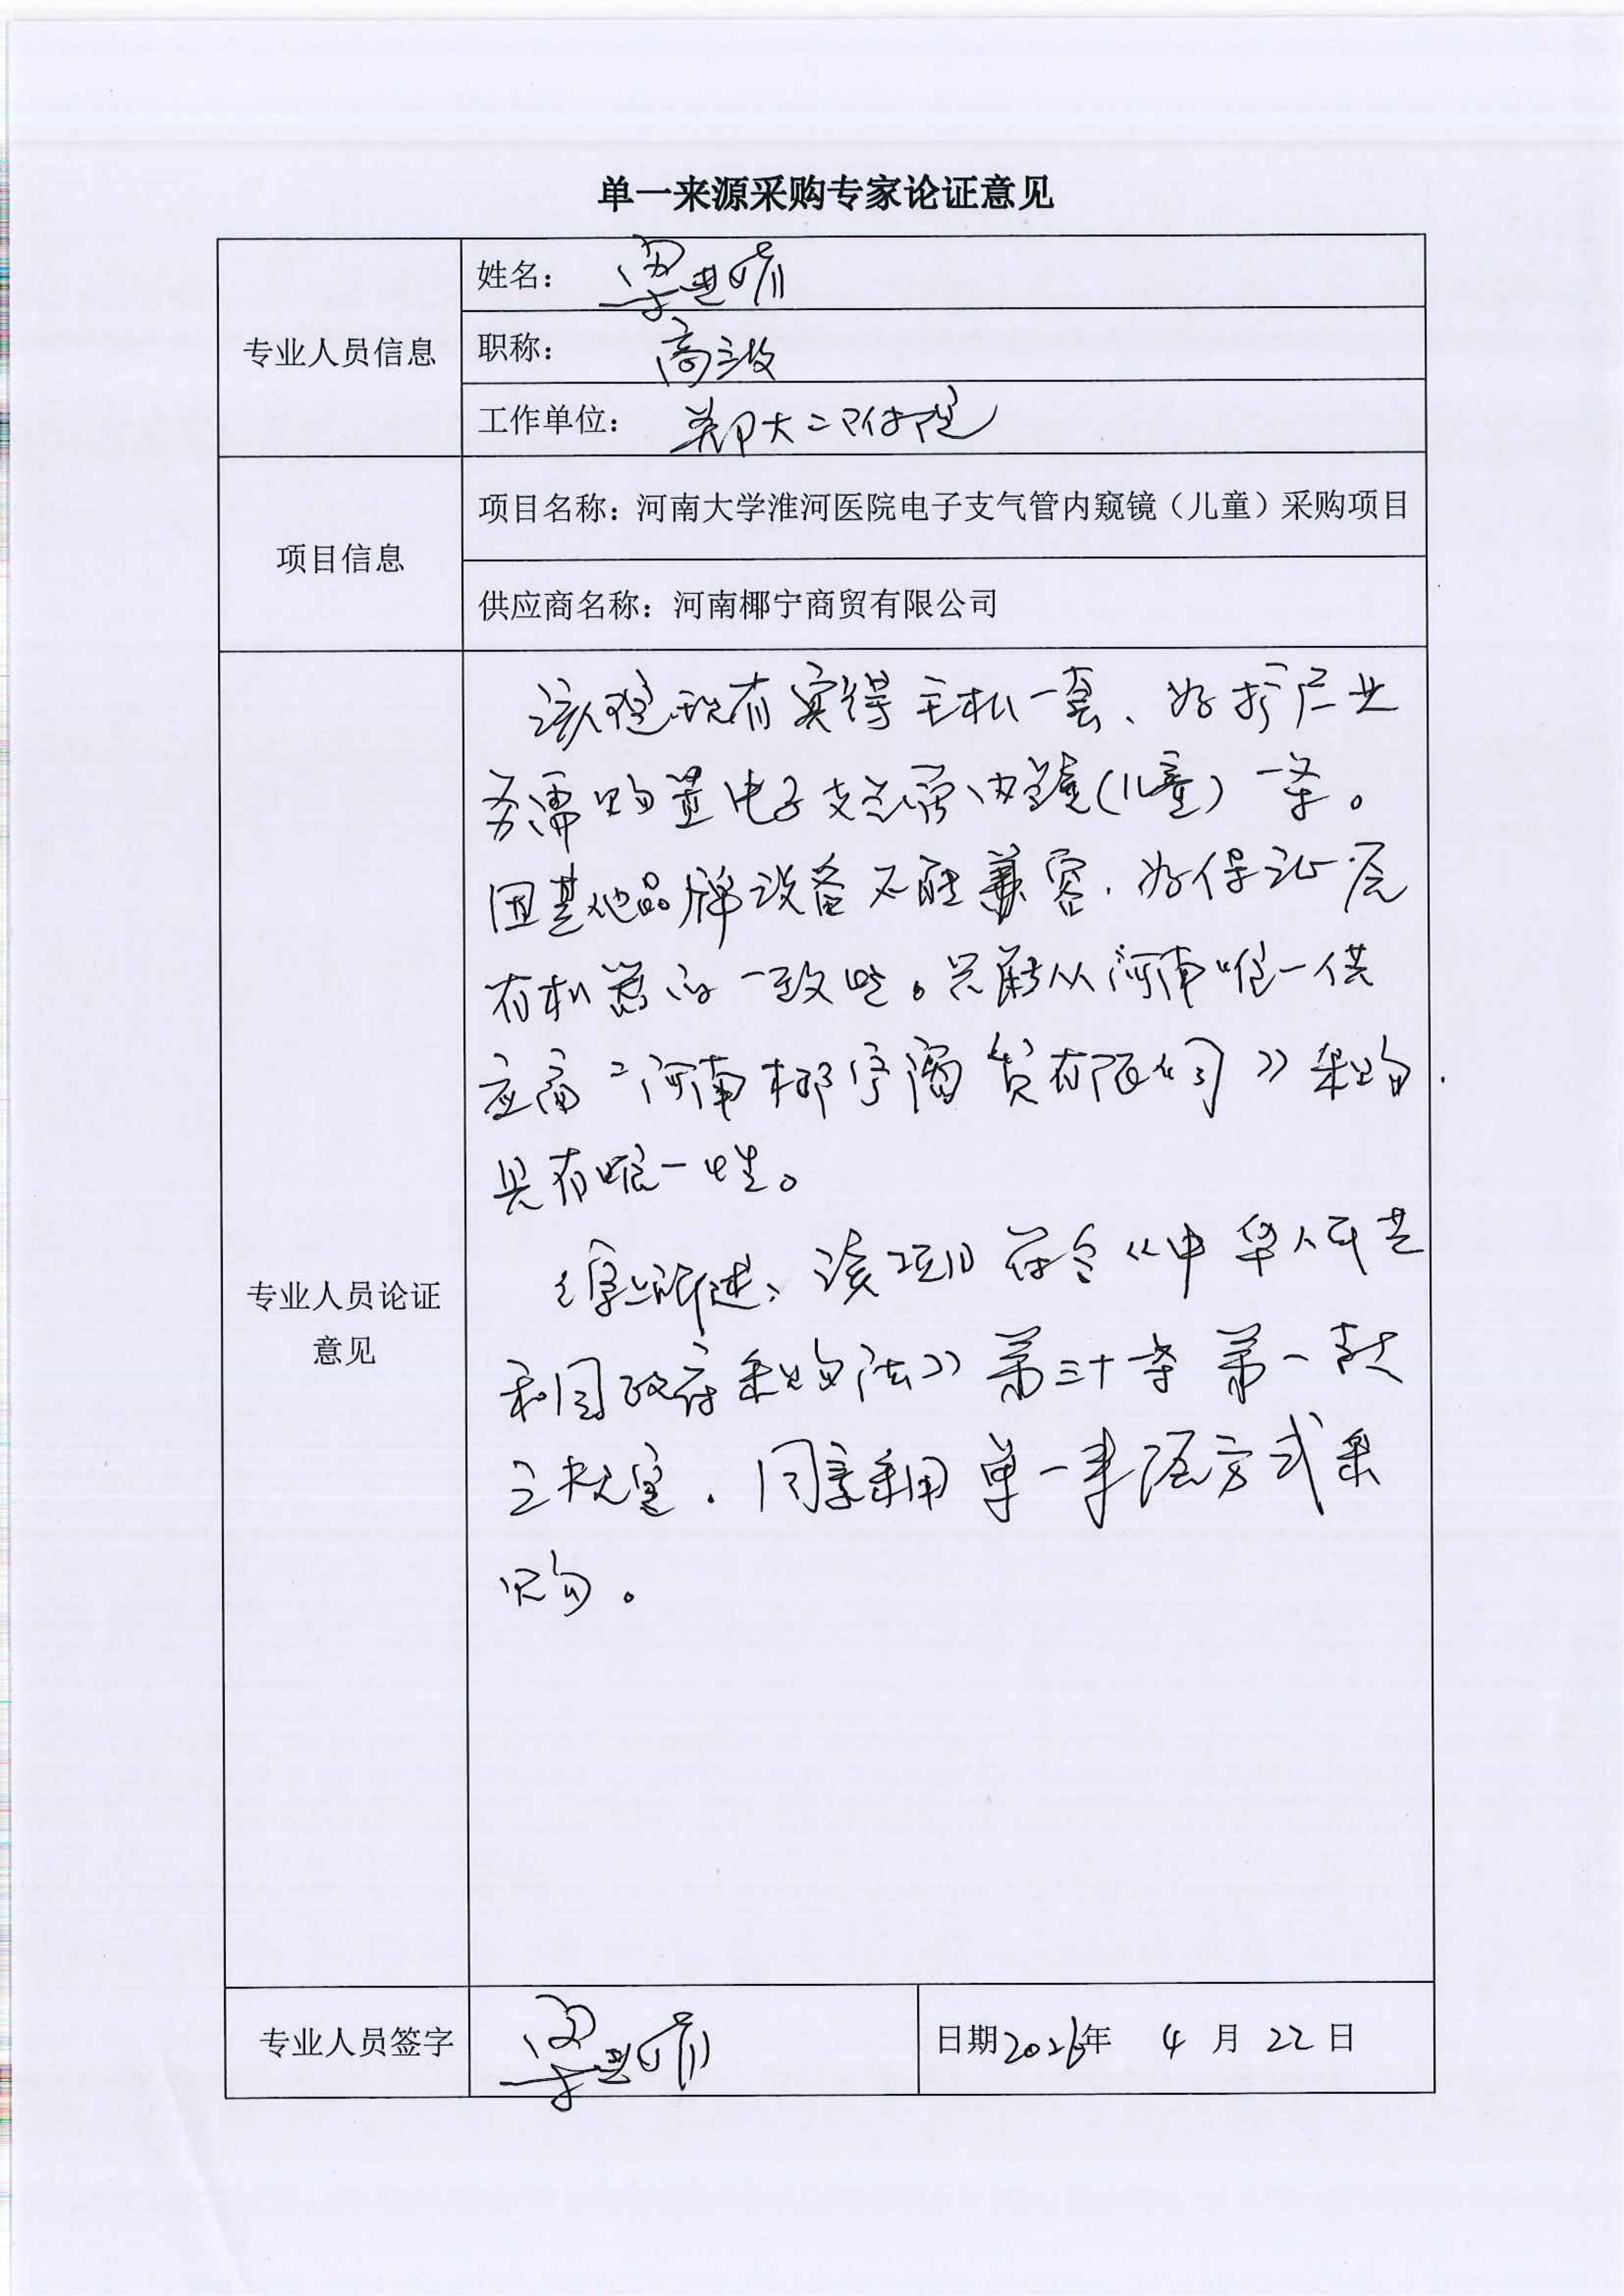 单一来源采购专家论证意见
专业人员信息
姓名：
职称： 高工
工作单位： 郑大二附院
项目信息
项目名称：河南大学淮河医院电子支气管内窥镜（儿童）采购项目
供应商名称：河南椰宁商贸有限公司
专业人员论证
意见
该院现有宾得主机一套、为扩广业
务需购置电子支气管内镜(儿童)一条。
因其他品牌设备不能兼容，为保证原
有机器的一致性。只能从河南唯一供
应商《河南椰宁商贸有限公司》采购.
具有唯一性。
综上所述、该项目符合《中华人民共
和国政府采购法》第三十条第一款
之规定，同意采用单一来源方式采
购。
专业人员签字
日期2026年 4 月 22 日